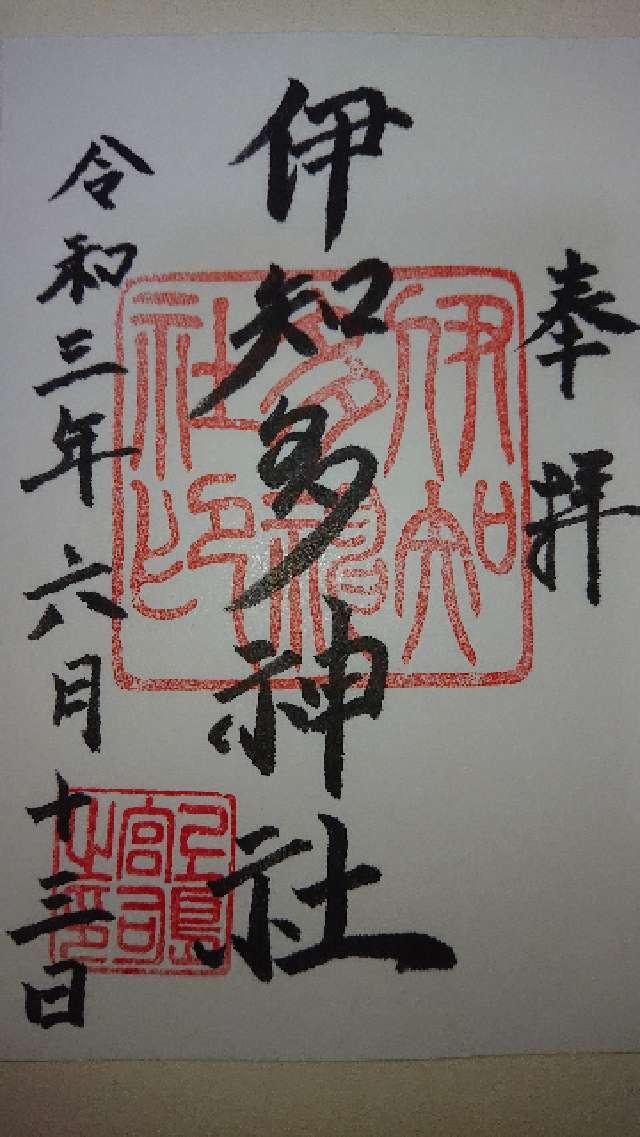 奉拝
伊知多神社
令和三年六月十三日
伊知
多神
社印
宮司
之印